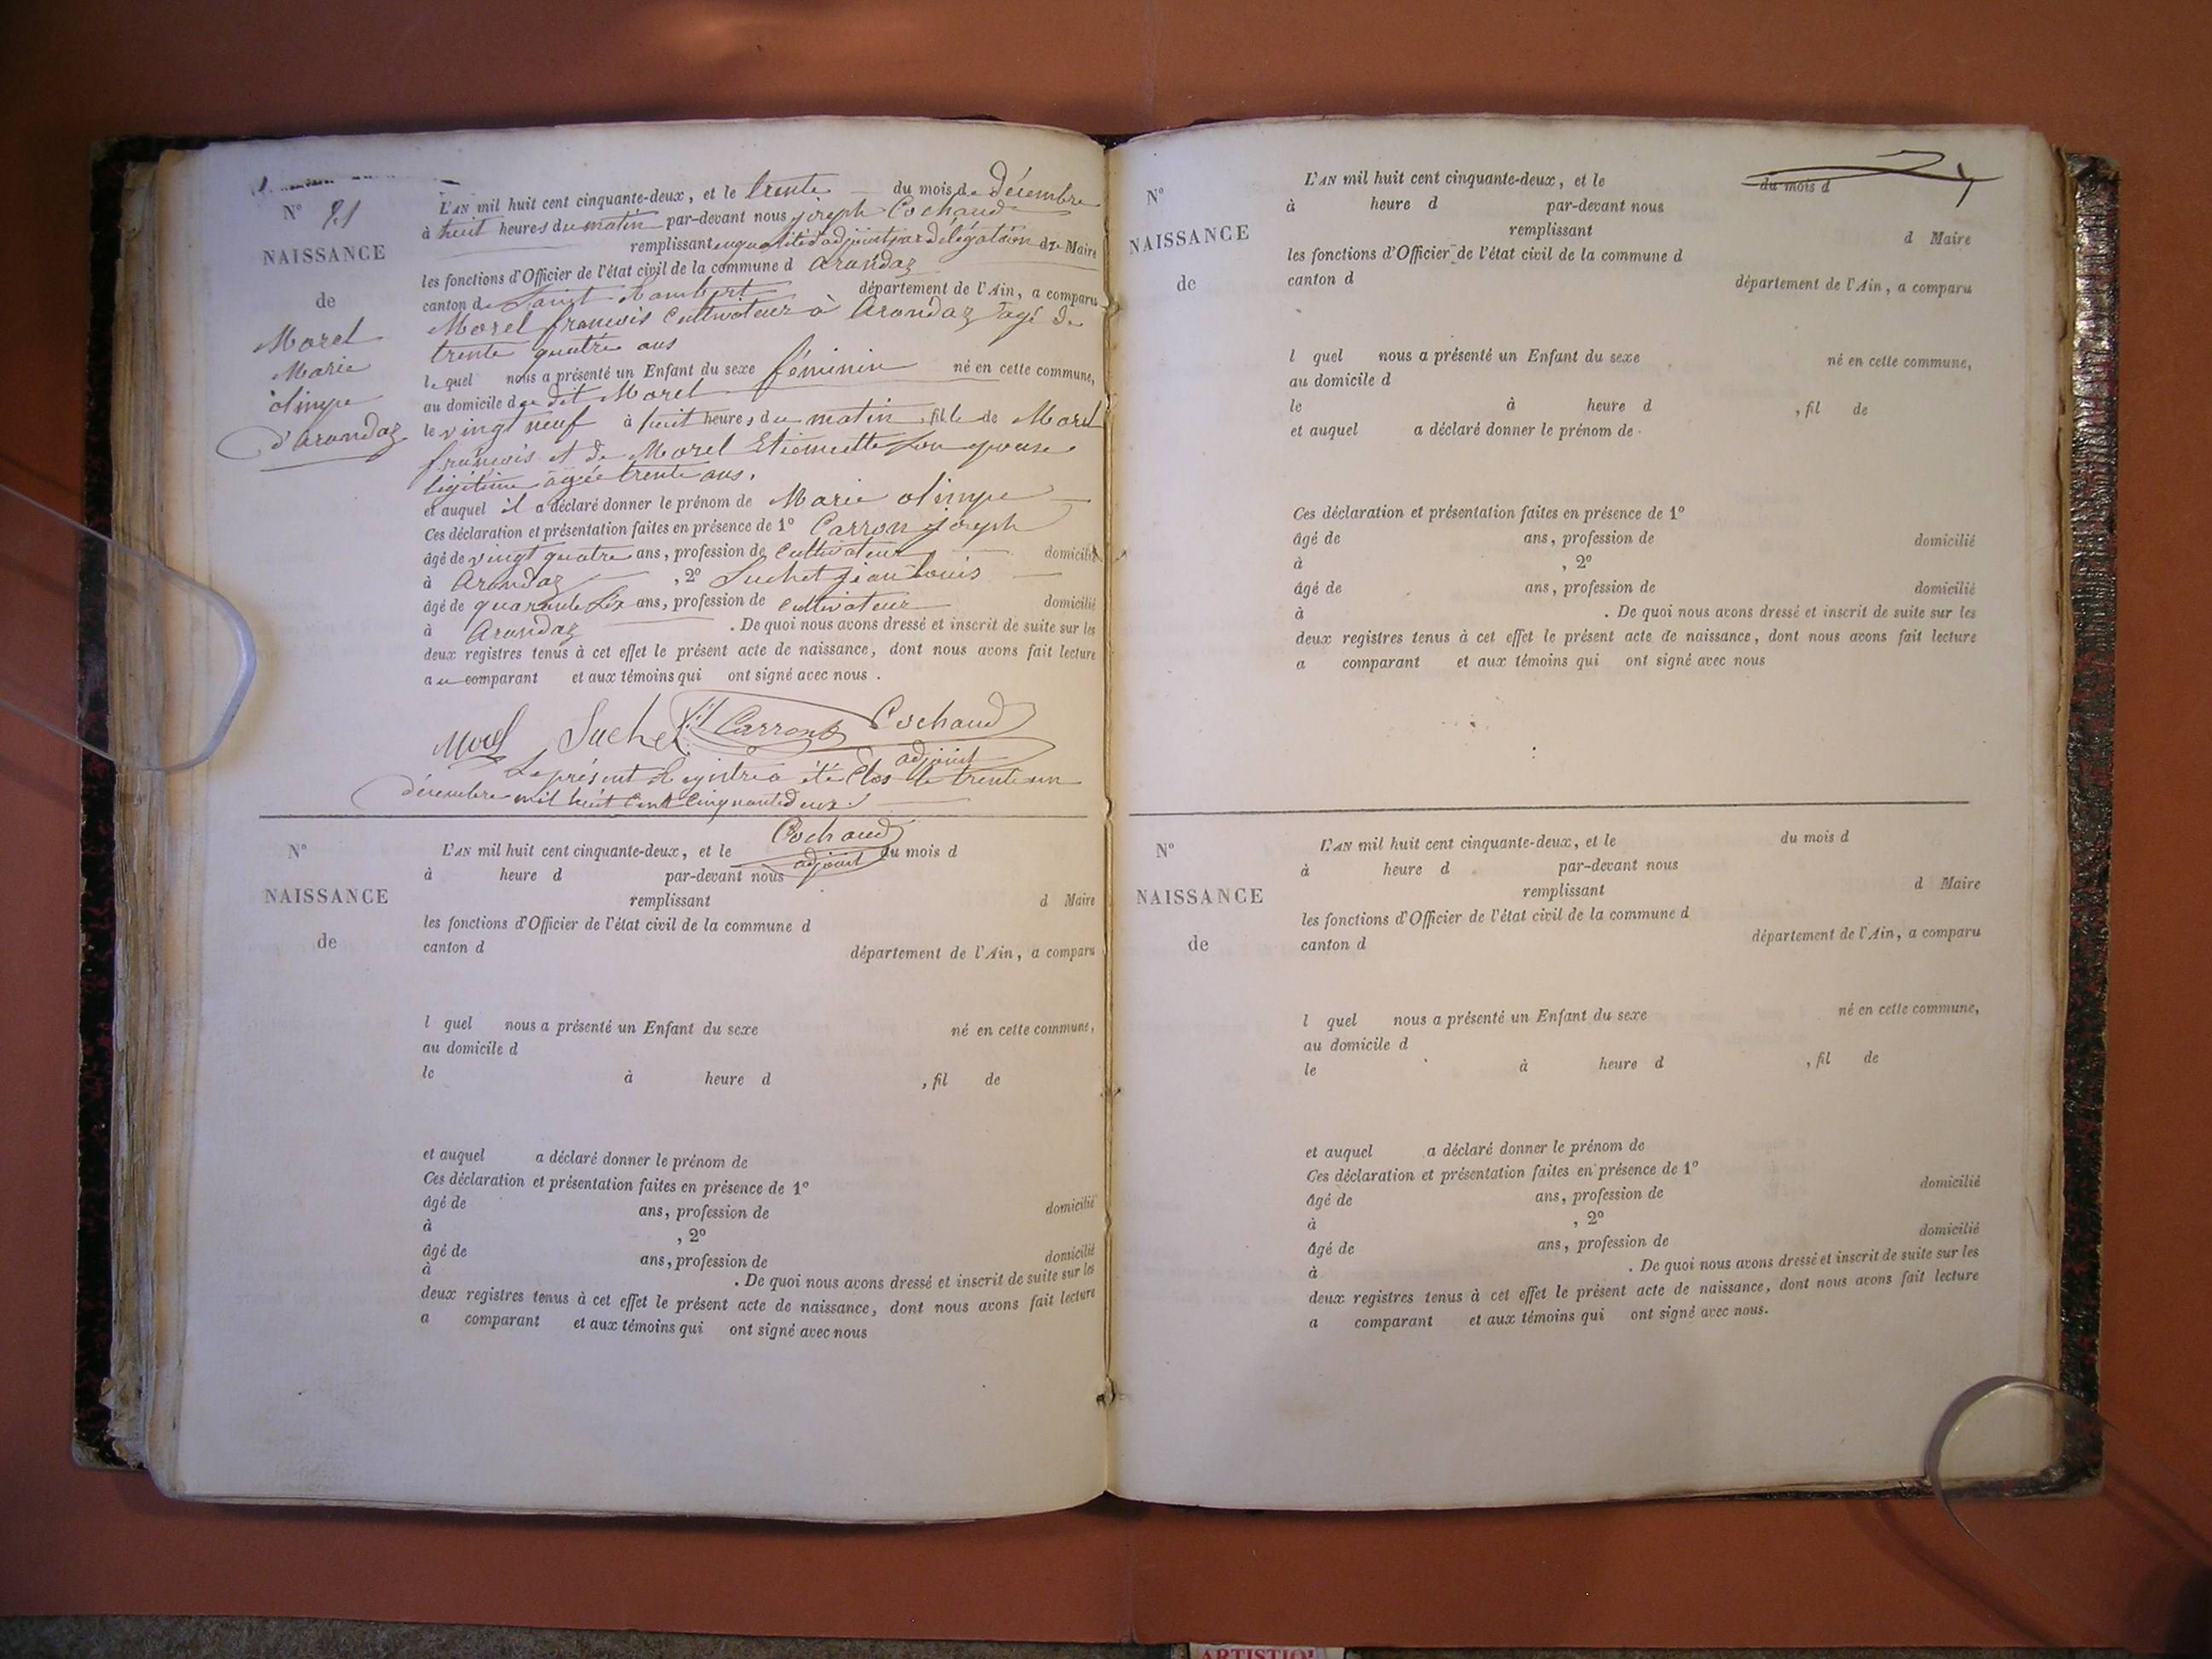 N° 21
NAISSANCE
de
Morel
Marie
olimpe
d'arandaz
L'AN mil huit cent cinquante-deux, et le trente du mois de décembre
à huit heures du matin par-devant nous joseph Cochaud
remplissant en qualité d'adjoint par délégation du Maire
les fonctions d'Officier de l'état civil de la commune d arandaz
canton de Saint Rambert département de l'Ain, a comparu
Morel françois Cultivateur à Arandaz agé de
trente quatre ans
lequel nous a présenté un Enfant du sexe féminin né en cette commune,
au domicile du dit Morel
le vingt neuf à huit heures du matin, fille de Morel
françois et de Morel Etiennette son epouse
légitime agée trente ans.
et auquel il a déclaré donner le prénom de Marie olimpe
Ces déclaration et présentation faites en présence de 1° Carron joseph
âgé de vingt quatre ans, profession de Cultivateur domicilié
à Arandaz, 2° Suchet jean Louis
âgé de quarante six ans, profession de Cultivateur domicilié
à Arandaz. De quoi nous avons dressé et inscrit de suite sur les
deux registres tenus à cet effet le présent acte de naissance, dont nous avons fait lecture
au comparant et aux témoins qui ont signé avec nous.
Morel Suchet Carron Cochaud
adjoint
Le présent Registre a été Clos le trente un
décembre mil huit Cent Cinquante deux.
Cochaud
adjoint
N°
NAISSANCE
de
L'AN mil huit cent cinquante-deux, et le du mois d
à heure d par-devant nous
remplissant d Maire
les fonctions d'Officier de l'état civil de la commune d
canton d département de l'Ain, a comparu
l quel nous a présenté un Enfant du sexe né en cette commune,
au domicile d
le à heure d , fil de
et auquel a déclaré donner le prénom de
Ces déclaration et présentation faites en présence de 1°
âgé de ans, profession de domicilié
à , 2°
âgé de ans, profession de domicilié
à . De quoi nous avons dressé et inscrit de suite sur les
deux registres tenus à cet effet le présent acte de naissance, dont nous avons fait lecture
a comparant et aux témoins qui ont signé avec nous
N°
NAISSANCE
de
L'AN mil huit cent cinquante-deux, et le du mois d
à heure d par-devant nous
remplissant d Maire
les fonctions d'Officier de l'état civil de la commune d
canton d département de l'Ain, a comparu
l quel nous a présenté un Enfant du sexe né en cette commune,
au domicile d
le à heure d , fil de
et auquel a déclaré donner le prénom de
Ces déclaration et présentation faites en présence de 1°
âgé de ans, profession de domicilié
à , 2°
âgé de ans, profession de domicilié
à . De quoi nous avons dressé et inscrit de suite sur les
deux registres tenus à cet effet le présent acte de naissance, dont nous avons fait lecture
a comparant et aux témoins qui ont signé avec nous
N°
NAISSANCE
de
L'AN mil huit cent cinquante-deux, et le du mois d
à heure d par-devant nous
remplissant d Maire
les fonctions d'Officier de l'état civil de la commune d
canton d département de l'Ain, a comparu
l quel nous a présenté un Enfant du sexe né en cette commune,
au domicile d
le à heure d , fil de
et auquel a déclaré donner le prénom de
Ces déclaration et présentation faites en présence de 1°
âgé de ans, profession de domicilié
à , 2°
âgé de ans, profession de domicilié
à . De quoi nous avons dressé et inscrit de suite sur les
deux registres tenus à cet effet le présent acte de naissance, dont nous avons fait lecture
a comparant et aux témoins qui ont signé avec nous.